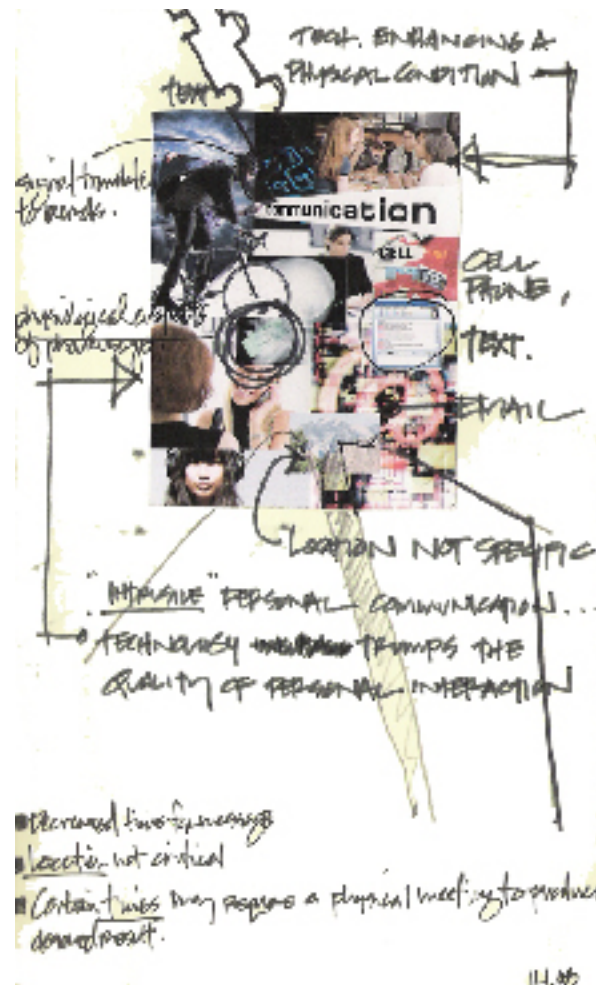 TECH. ENHANCING A
PHYSICAL CONDITION
TEXT
signal translated
to words.
communication
CELL
CELL
PHONE,
TEXT.
EMAIL
of
LOCATION NOT SPECIFIC
"INTRUSIVE" PERSONAL COMMUNICATION...
TECHNOLOGY TRUMPS THE
QUALITY OF PERSONAL INTERACTION
Decreased time for message
Location not critical
Certain times may require a physical meeting to produce
desired result.